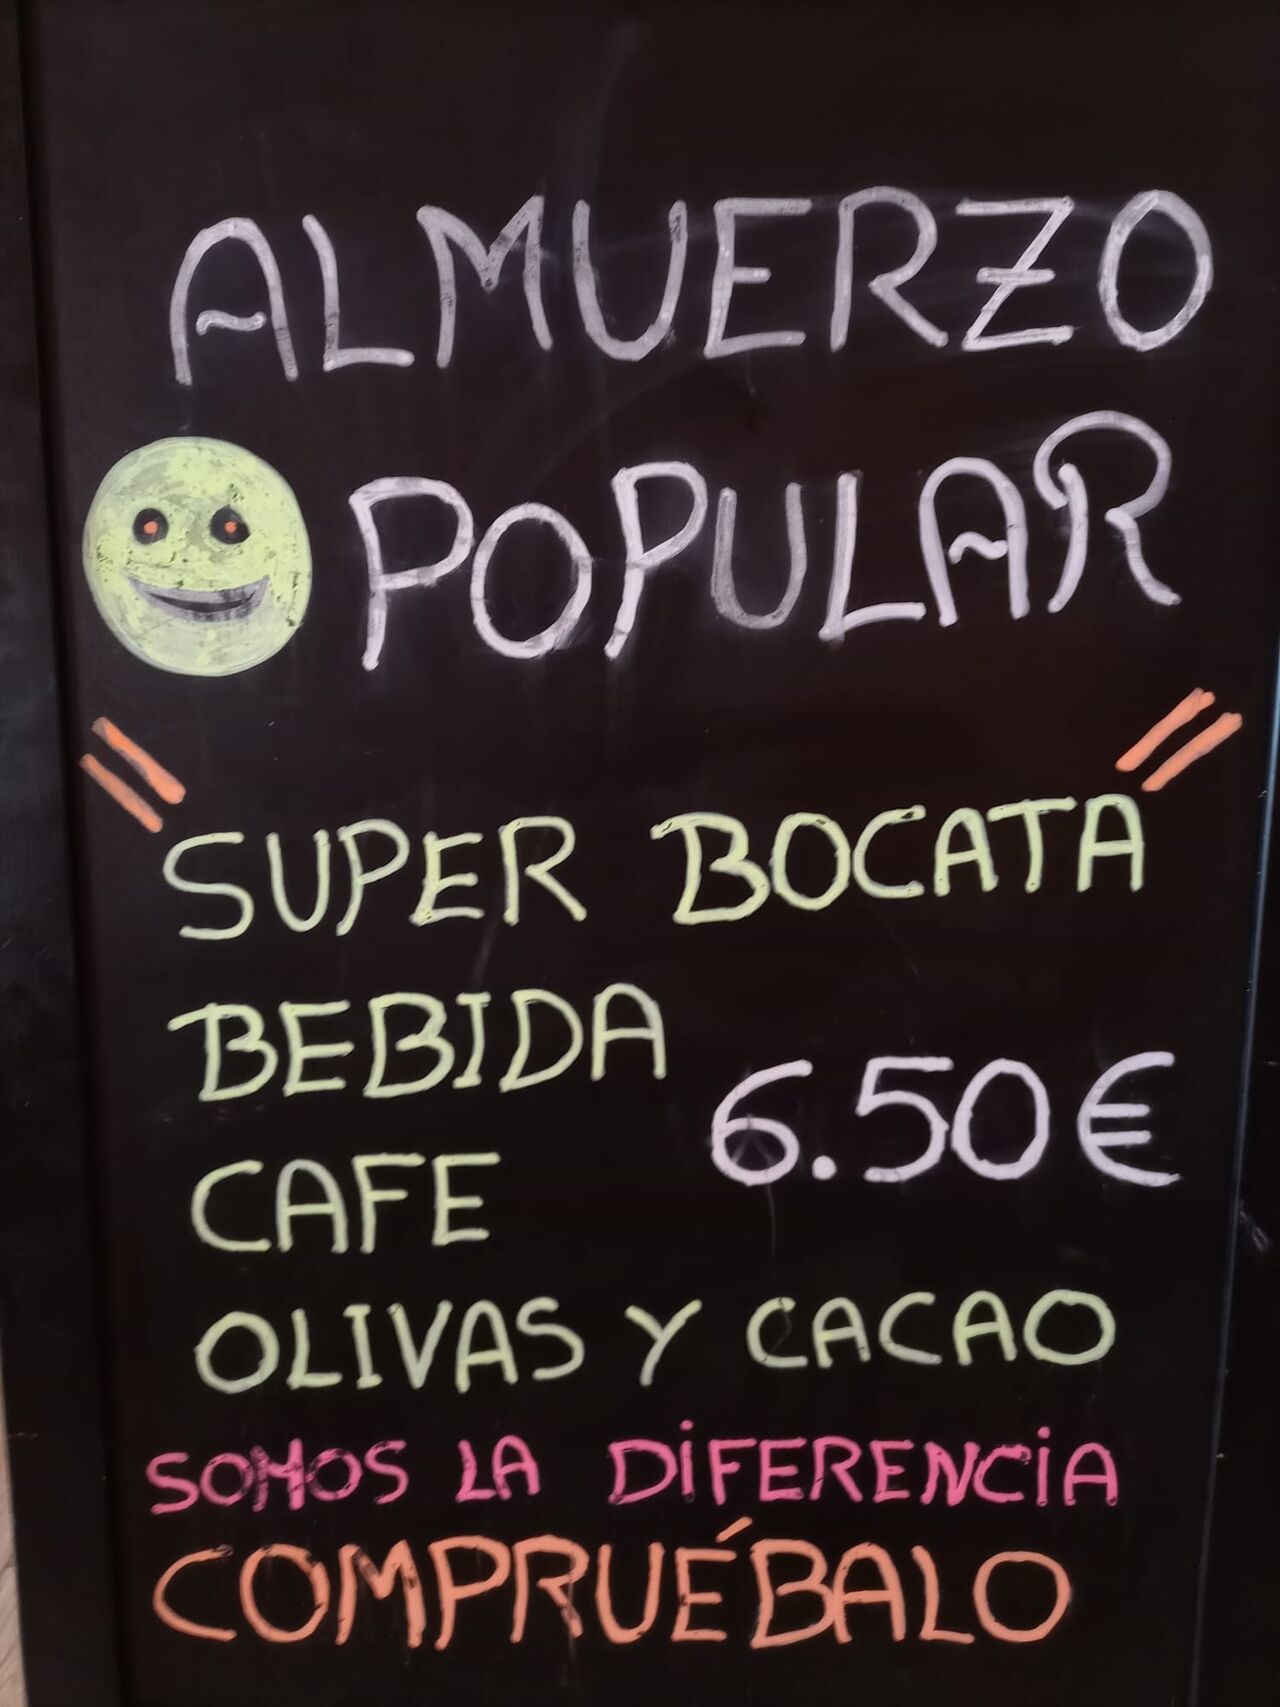 ALMUERZO
POPULAR
SUPER BOCATA
BEBIDA
6.50€
CAFE
OLIVAS Y CACAO
SOMOS LA DIFERENCIA
COMPRUÉBALO